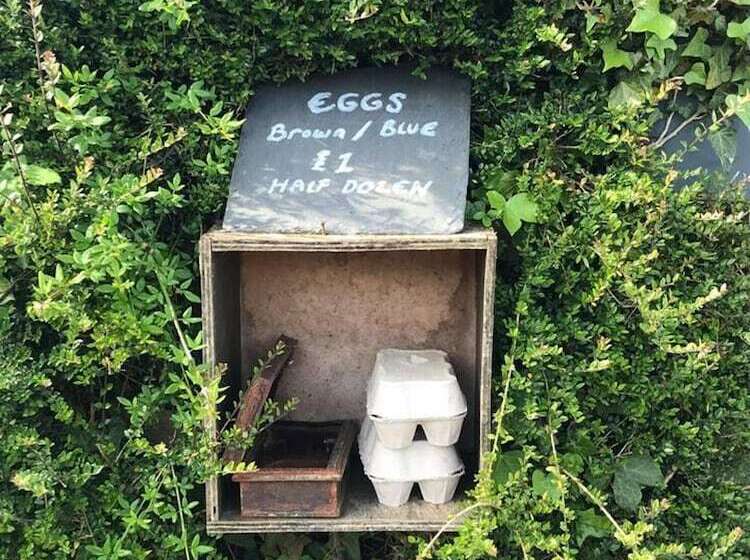 EGGS
Brown / BLUE
£1
HALF DOZEN